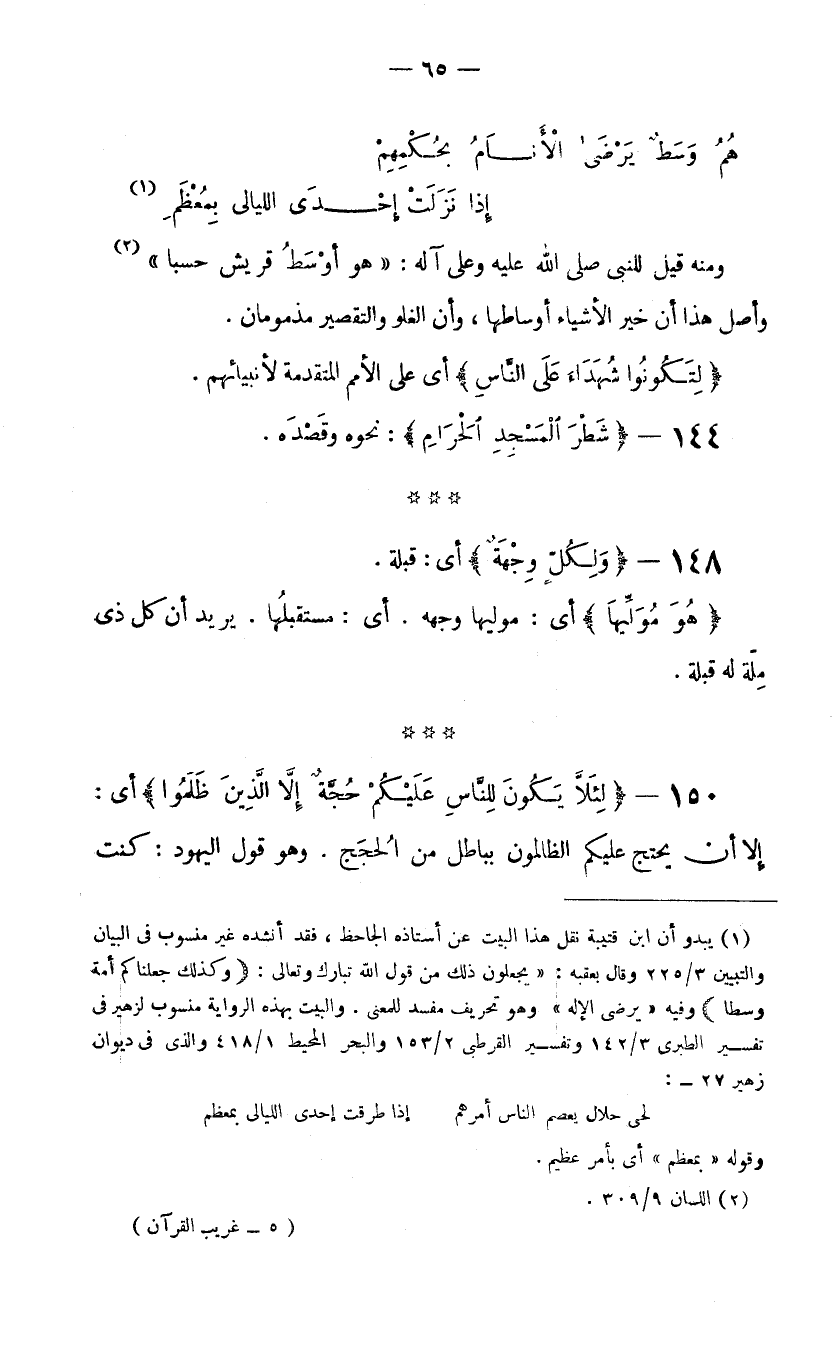 — ٦٥ —
هُمُ وَسَطٌ يَرْضَى الْأَنَـامُ بِحُكْمِهِمْ
إِذا نَزَلَتْ إِحْـدَى الليالى بِمُعْظَمِ (١)
ومنه قيل للنبى صلى الله عليه وعلى آله : « هو أوْسَطُ قريش حسبا » (٢)
وأصل هذا أن خير الأشياء أوساطها ، وأن الغلو والتقصير مذمومان .
﴿ لِتَكُونُوا شُهَدَاءَ عَلَى النَّاسِ ﴾ أى على الأمم المتقدمة لأنبيائهم .
١٤٤ — ﴿ شَطْرَ ٱلْمَسْجِدِ ٱلْحَرَامِ ﴾ : نحوه وقَصْدَه .
☆ ☆ ☆
١٤٨ — ﴿ وَلِكُلٍّ وِجْهَةٌ ﴾ أى : قبلة .
﴿ هُوَ مُوَلِّيهَا ﴾ أى : موليها وجهه . أى : مستقبلُها . يريد أن كل ذى
مِلّة له قبلة .
☆ ☆ ☆
١٥٠ — ﴿ لِئَلَّا يَكُونَ لِلنَّاسِ عَلَيْكُمْ حُجَّةٌ إِلَّا الَّذِينَ ظَلَمُوا ﴾ أى :
إلا أن يحتج عليكم الظالمون بباطل من الحُجَج . وهو قول اليهود : كنت
(١) يبدو أن ابن قتيبة نقل هذا البيت عن أستاذه الجاحظ ، فقد أنشده غير منسوب فى البيان
والتبيين ٢٢٥/٣ وقال بعقبه : « يجعلون ذلك من قول الله تبارك وتعالى : ( وكذلك جعلناكم أمة
وسطا ) وفيه « يرضى الإله » وهو تحريف مفسد للمعنى . والبيت بهذه الرواية منسوب لزهير فى
تفسير الطبرى ١٤٢/٣ وتفسير القرطى ١٥٣/٢ والبحر المحيط ٤١٨/١ والذى فى ديوان
زهير ٢٧ ـ :
لحى حلال يعصم الناس أمرهم إذا طرقت إحدى الليالى بمعظم
وقوله « بمعظم » أى بأمر عظيم .
(٢) اللسان ٣٠٩/٩ .
( ٥ ـ غريب القرآن )